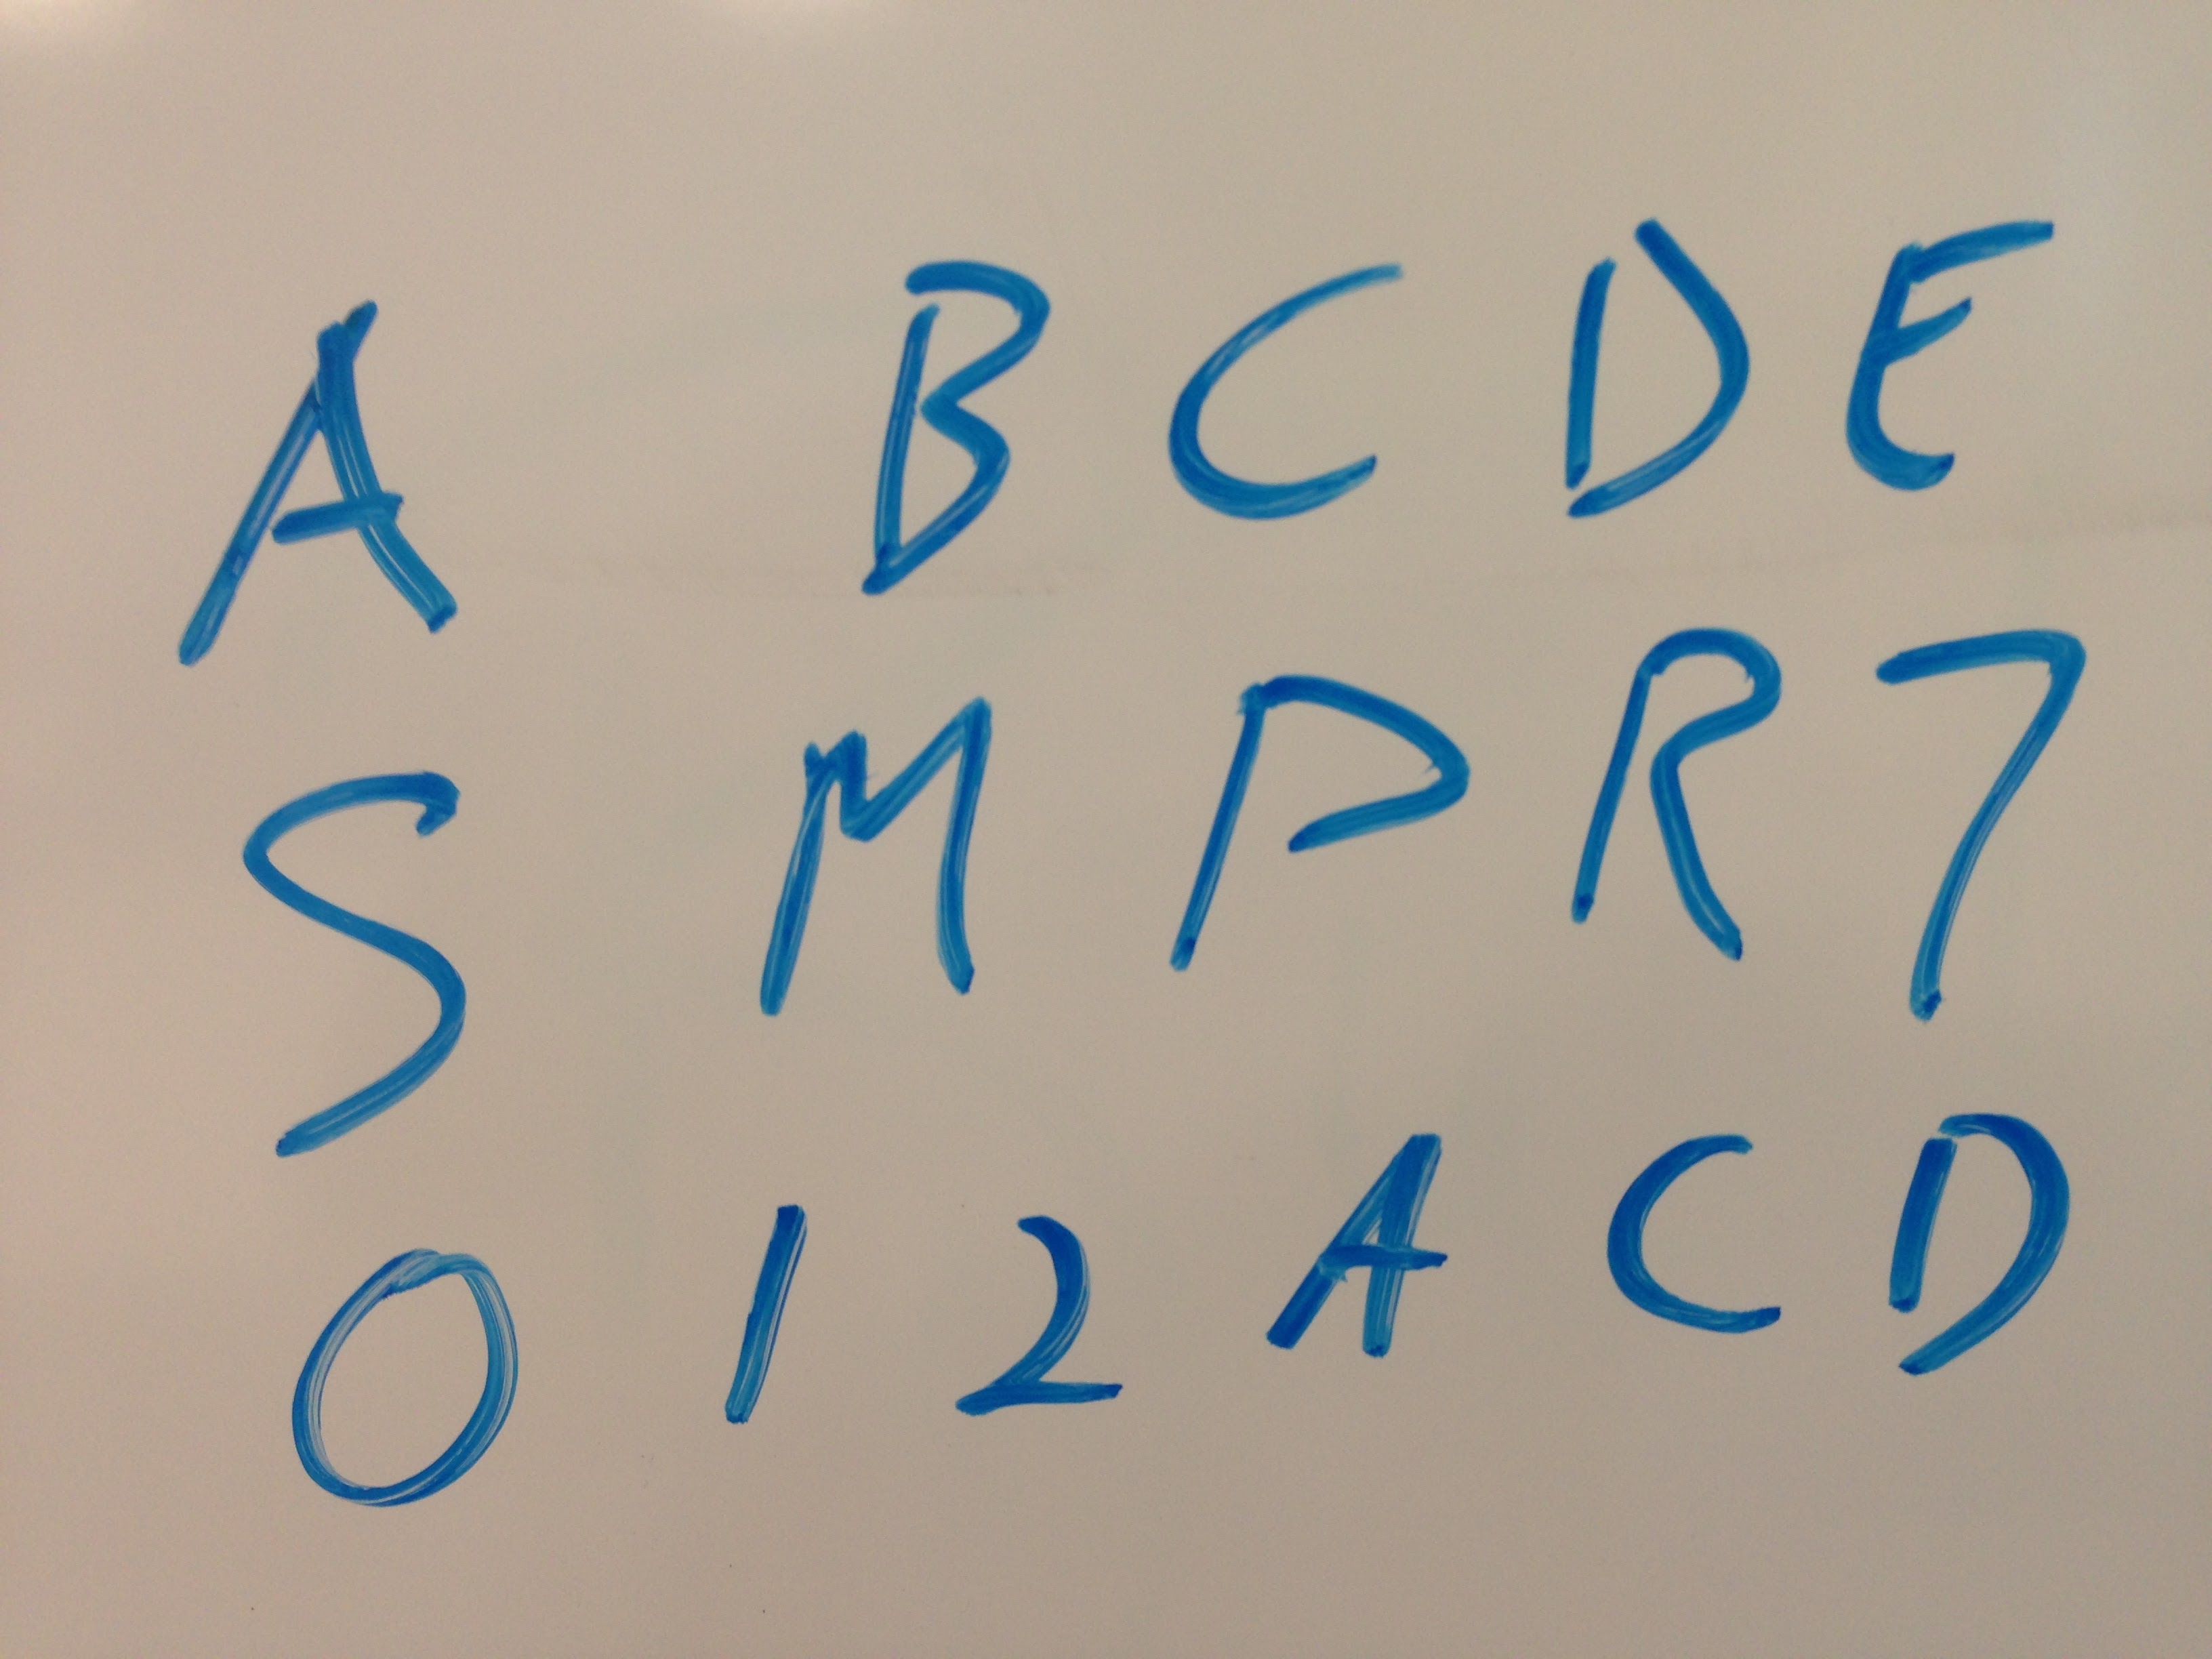 A B C D E
S M P R 7
0 1 2 A C D